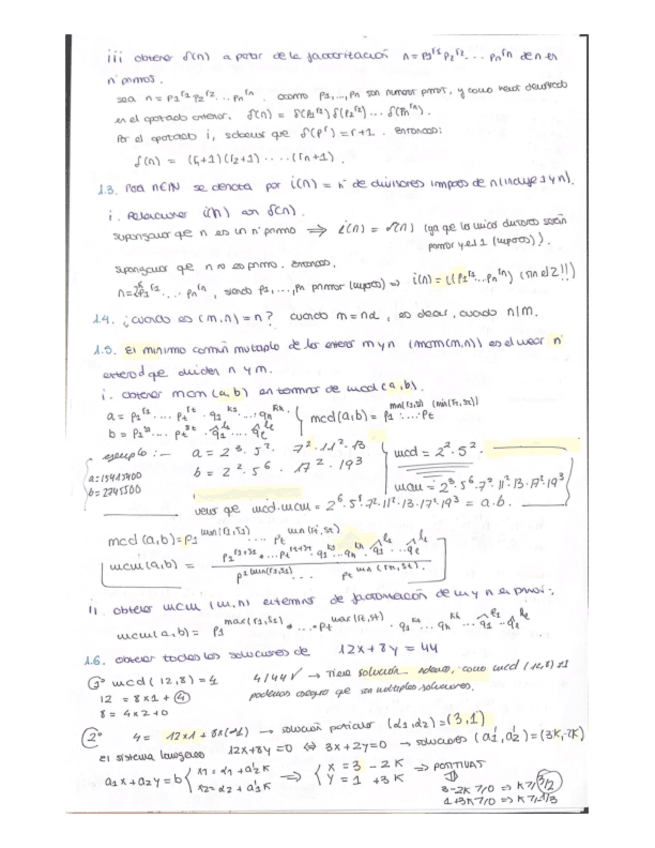 iii obtener δ(n) a partir de la factorización n = p1^r1 p2^r2 ... pn^rn de n en
nº primos.
sea n = p1^r1 p2^r2 ... pn^rn. como p1,...,pn son numeros primos, y como hemos demostrado
en el apartado anterior, δ(n) = δ(p1^r1) δ(p2^r2) ... δ(pn^rn).
Por el apartado i, sabemos que δ(p^r) = r+1. entonces:
δ(n) = (r1+1)(r2+1) ..... (rn+1).
1.3. Para n∈IN se denota por i(n) = nº de divisores impares de n (incluye 1 y n).
i. Relacionar i(n) con δ(n).
supongamos que n es un nº primo ⟹ i(n) = δ(n) (ya que los unicos divisores serán
primor y el 1 (impares)).
supongamos que n no es primo. entonces,
n = 2^k p1^r1 ... pn^rn, siendo p1,...,pn primos (impares) ⟹ i(n) = i(p1^r1 ... pn^rn) (sin el 2!!)
1.4. ¿cuando es (m,n) = n? cuando m = nd, es decir, cuando n|m.
1.5. El minimo común multiplo de los enteros m y n (mcm(m,n)) es el menor nº
entero d que dividen n y m.
i. obtener mcm (a,b) en terminos de mcd (a,b).
a = p1^r1 ... pt^rt · q1^k1 ... qn^kn
b = p1^s1 ... pt^st · q̂1^l1 ... q̂e^le
mcd(a,b) = p1^min(r1,s1) ... pt^min(rt,st)
ejemplo: - a = 2^3 · 5^2 · 7^2 · 11^2 · 13
b = 2^2 · 5^6 · 17^2 · 19^3
mcd = 2^2 · 5^2.
mcm = 2^3 · 5^6 · 7^2 · 11^2 · 13 · 17^2 · 19^3
vemos que mcd · mcm = = a·b.
mcd (a,b) = p1^min(r1,s1) ... pt^min(rt,st)
mcm (a,b) = p1^r1+s1 ... pt^rt+st · q1^k1 ... qn^kn · q̂1^l1 ... q̂e^le
p1^min(r1,s1) ... pt^min(rt,st).
ii. obtener mcm (m,n) en terminos de factorización de m y n en primos:
mcm(a,b) = p1^max(r1,s1) · ... · pt^max(rt,st) · q1^k1 ... qn^kn · q̂1^l1 ... q̂e^le
1.6. obtener todas las soluciones de 12x + 8y = 44
1º mcd (12,8) = 4 4/44 ✓ → Tiene solución. además, como mcd (12,8) ≠ 1
12 = 8x1 + 4 podemos asegurar que son multiples soluciones.
8 = 4x2 + 0
2º 4 = 12x1 + 8x(-1) → solución particular (α1,α2) = (3,1)
el sistema homogeneo 12x+8y=0 ⟺ 3x+2y=0 → soluciones (a1',a2') = (3K,-2K)
a1x + a2y = b { x1 = α1 + a2'K ⟹ { x = 3 - 2K ⟹ POSITIVAS
x2 = α2 + a1'K y = 1 + 3K
3-2K > 0 ⟹ K > 3/2
1+3K > 0 ⟹ K > -1/3